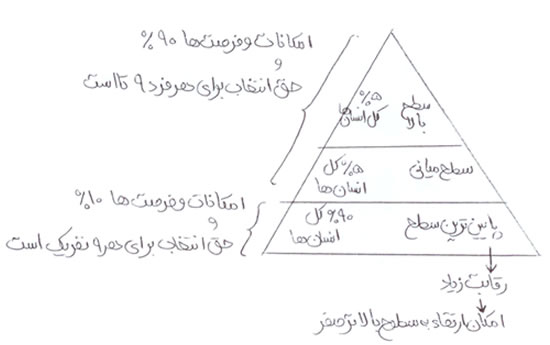 امکانات و فرصت ها ۹۰%
و
حق انتخاب برای هر فرد ۹ تا است
سطح بالا
۵% کل انسان ها
سطح میانی
۵% کل انسان ها
امکانات و فرصت ها ۱۰%
و
حق انتخاب برای هر ۹ نفر یک است
پایین ترین سطح
۹۰% کل انسان ها
رقابت زیاد
امکان ارتقاء به سطح بالاتر صفر